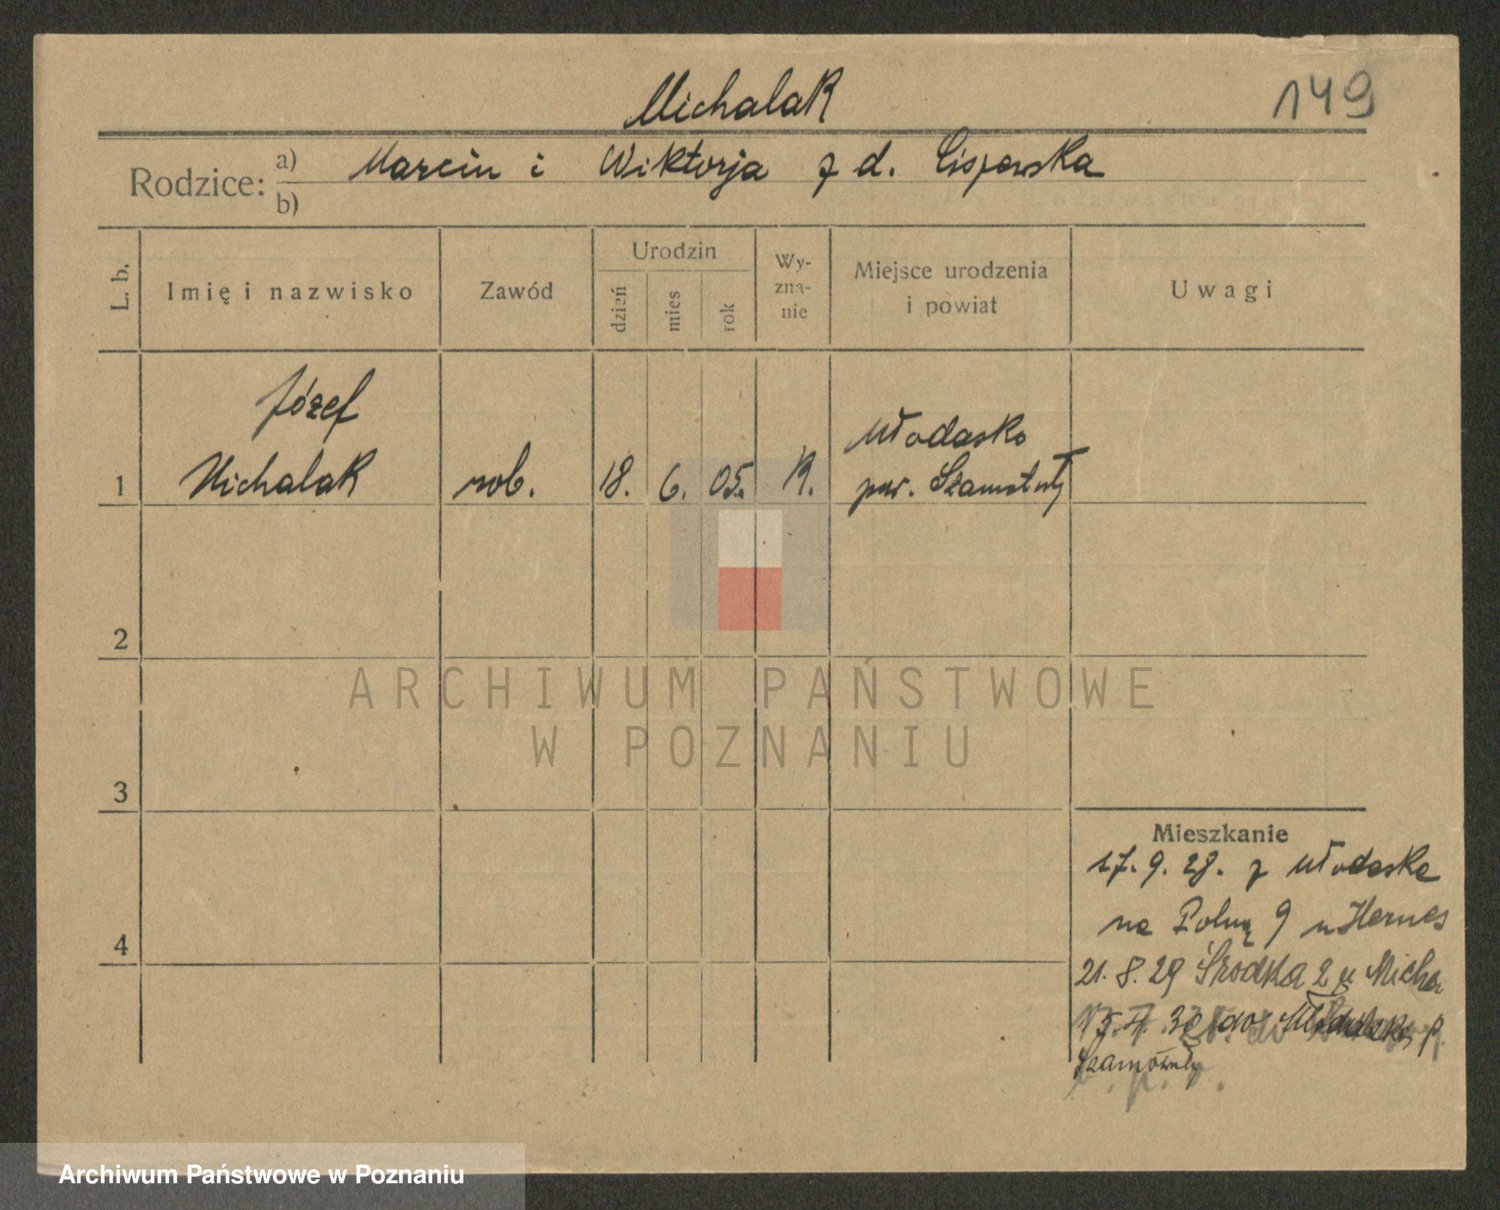 149
Michalak
Rodzice: a) Marcin i Wiktorja z d. Ciszewska
b)
L. b. Imię i nazwisko Zawód Urodzin dzień mies rok Wy-zna-nie Miejsce urodzenia i powiat Uwagi
Józef
Michalak
1 rob. 18. 6. 05. K. Młodasko
pow. Szamotuły
2
3
4
ARCHIWUM PAŃSTWOWE
W POZNANIU
Mieszkanie
17. 9. 28. z Młodaska
na Polną 9 u
21. 8. 29 Środka 2 u Micha
30 do p.
Szamotuły
Archiwum Państwowe w Poznaniu